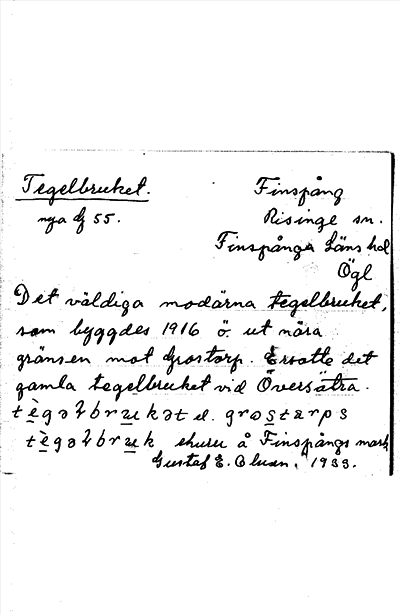 Tegelbruket. Finspång
nya G 55. Risinge sn.
Finspångs Läns hd
Ögl
Det väldiga modärna tegelbruket,
som byggdes 1916 ö. ut nära
gränsen mot Grostorp. Ersatte det
gamla tegelbruket vid Översätra.
tègəɫbrukət el. grostærps
tègəɫbruk ehuru å Finspångs mark
Gustaf E. Oluan, 1933.